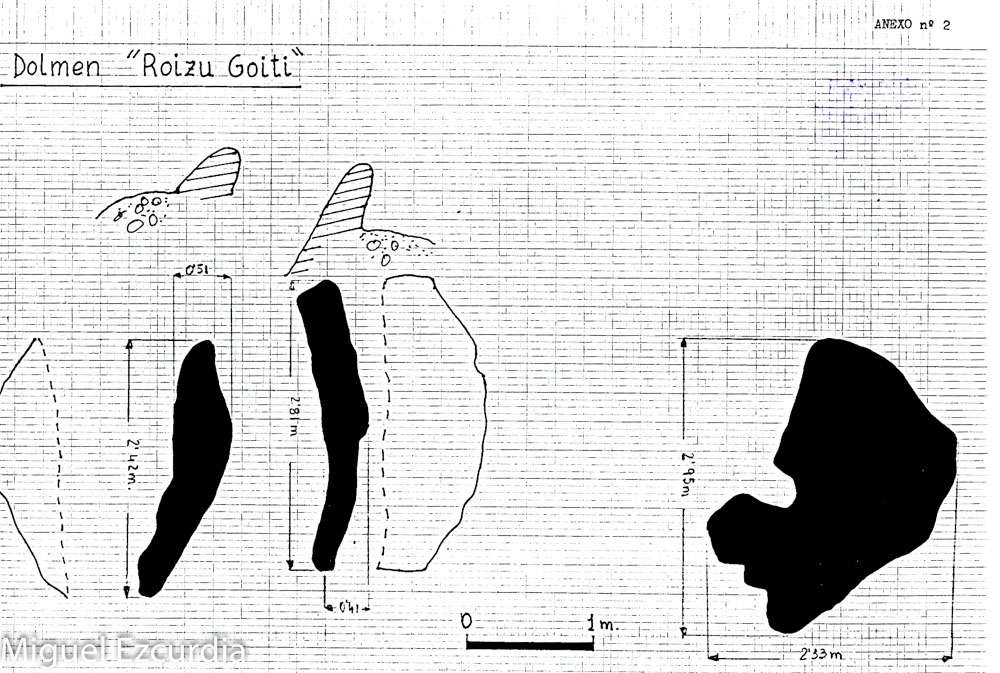 ANEXO nº 2
Dolmen "Roizu Goiti"
0'51
2'42m.
2'81 m
0'41
2'95m
2'33 m
0 1 m.
Miguel Ezcurdia